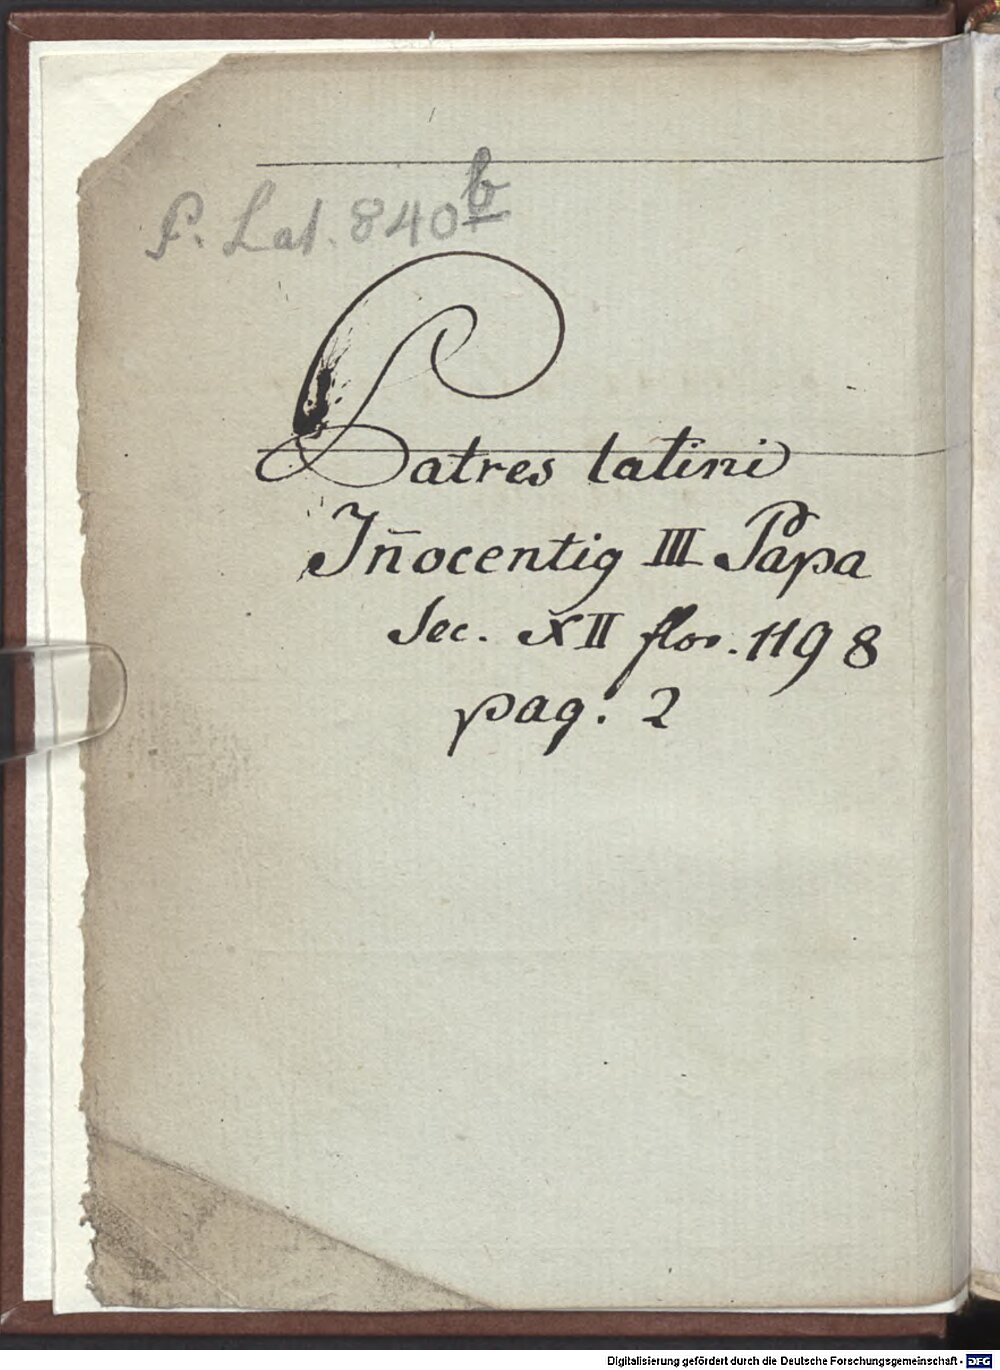 P. Lat. 840 b
Patres latini
Iñocentig III Papa
Sec. XII flor. 1198
pag. 2
Digitalisierung gefördert durch die Deutsche Forschungsgemeinschaft - DFG